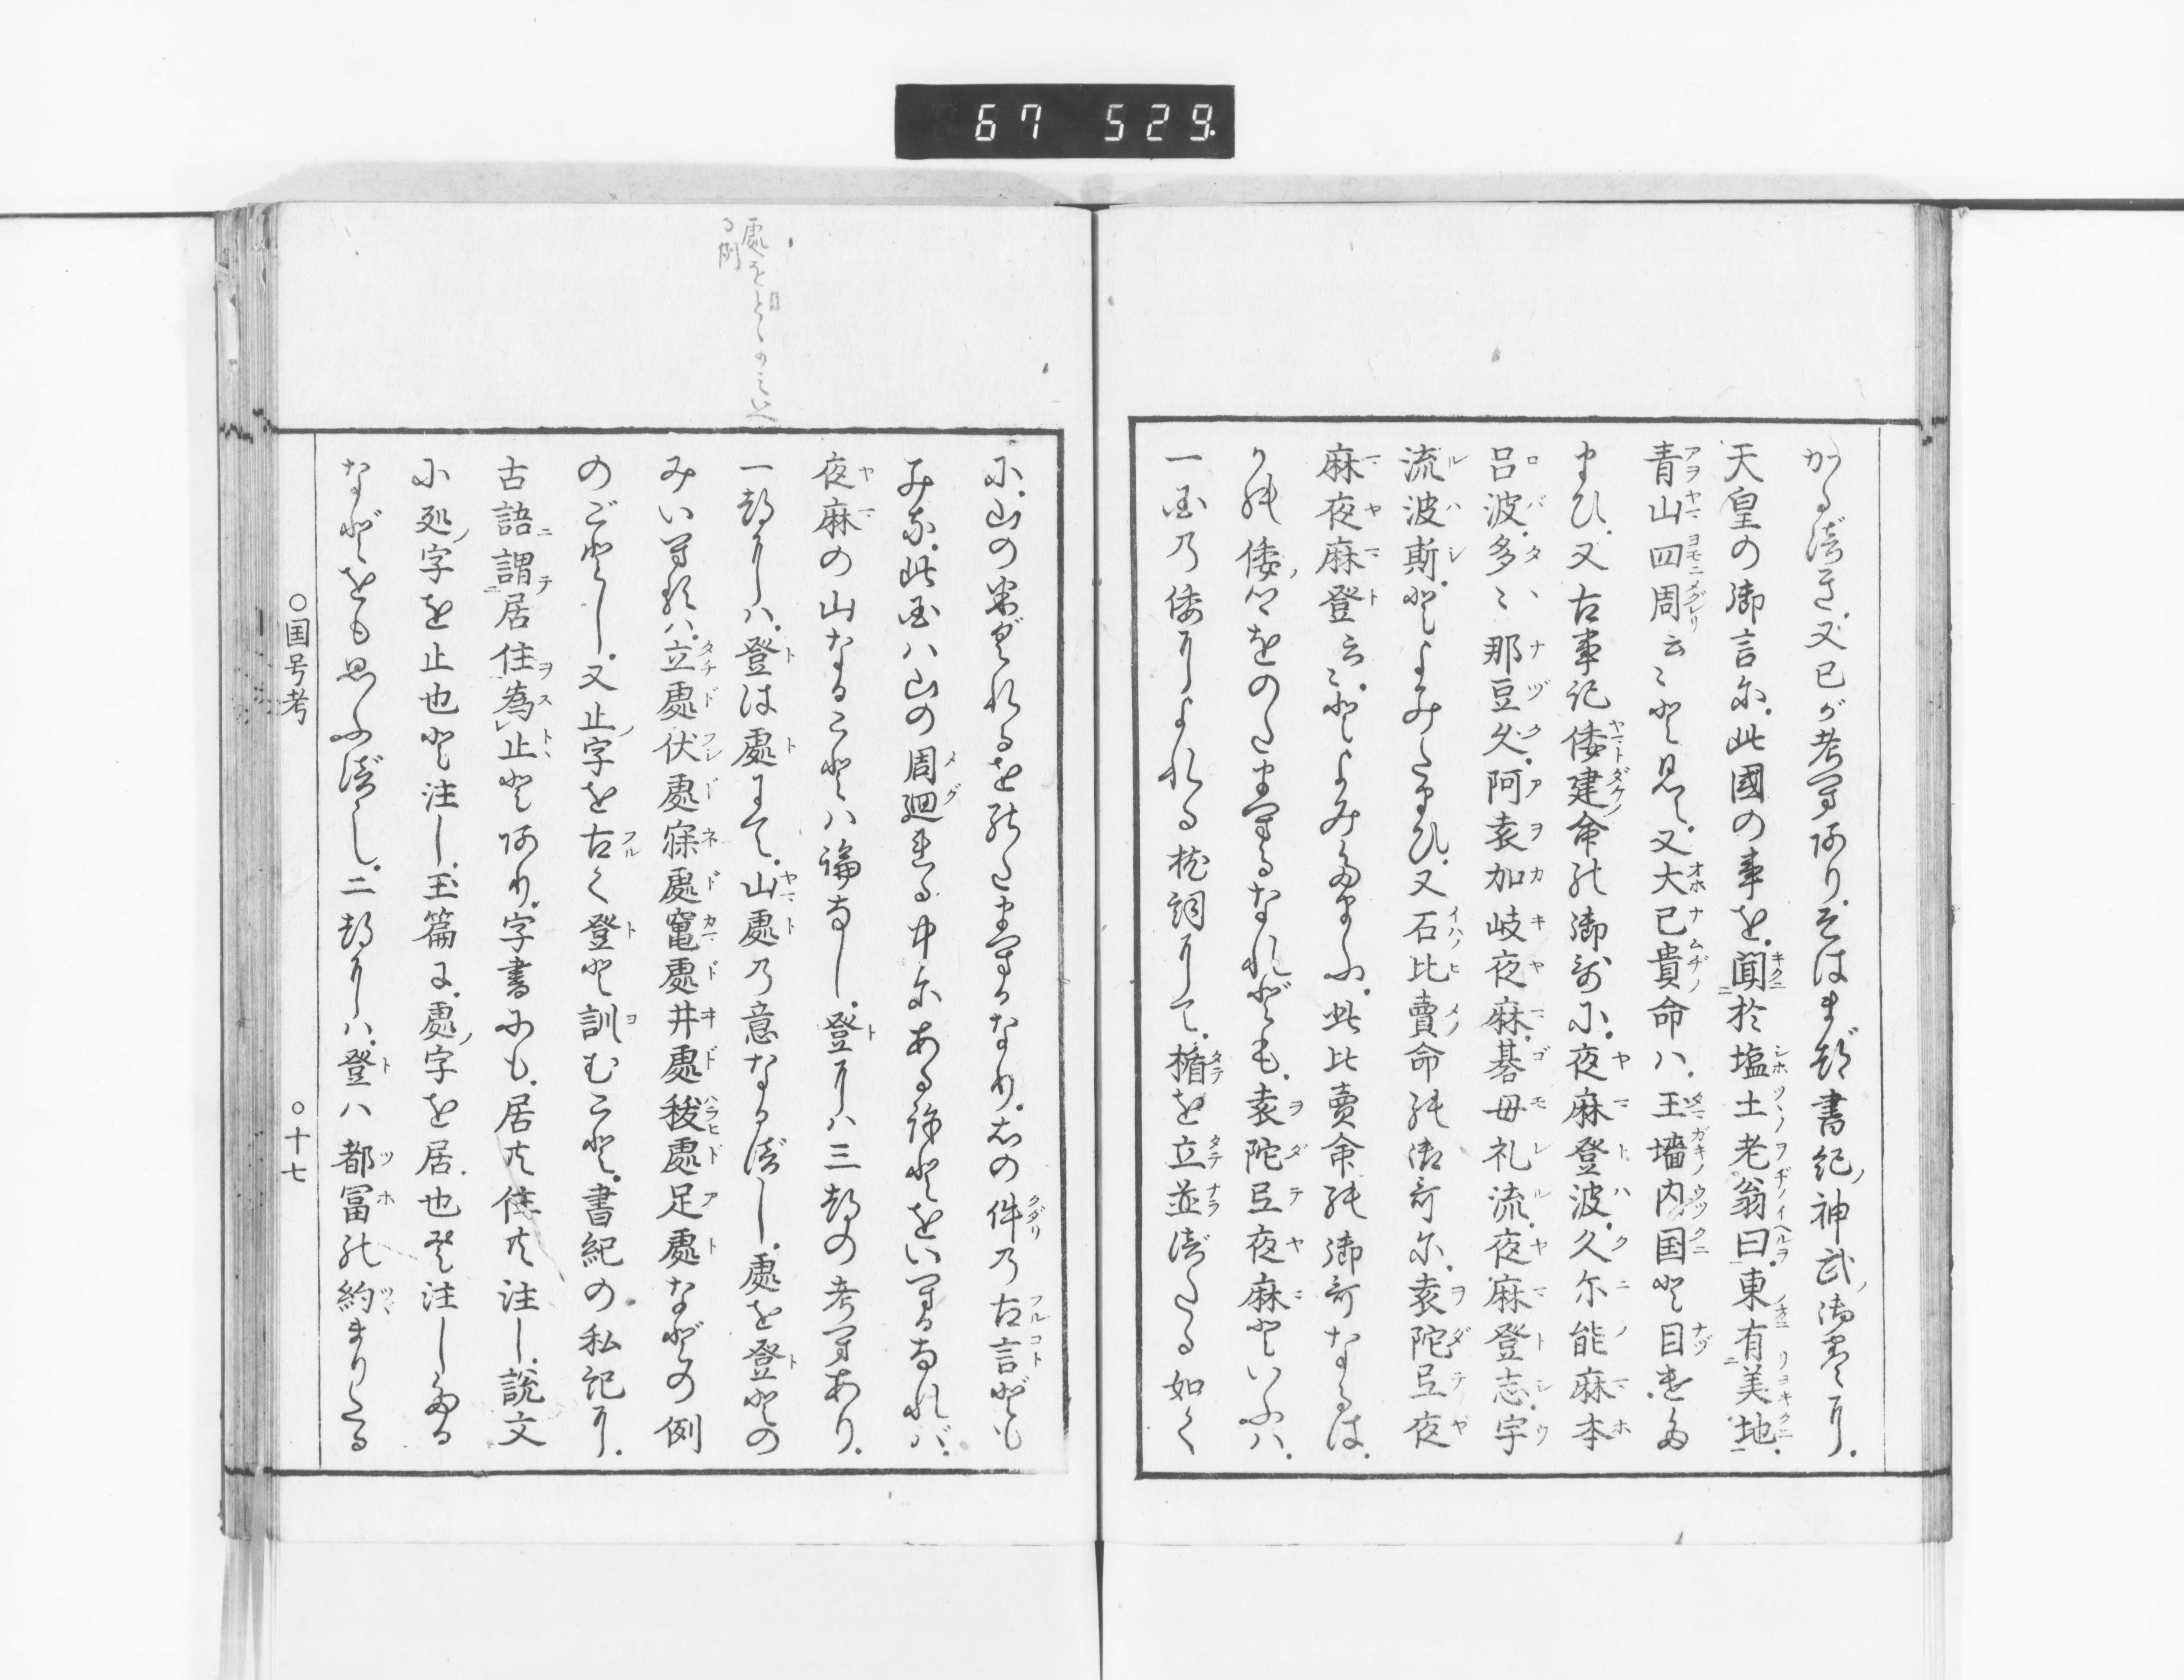 67 529.
かるべき。又己が考へあり。そはまづ書紀ノ神武ノ御巻に。
天皇の御言に。此國の事を。聞於塩土老翁曰。東有美地。
青山四周云々と見え。又大己貴命ハ。玉墻内国と目けた
まひ。又古事記倭建命の御歌に。夜麻登波。久尓能麻本
呂波。多々那豆久。阿袁加岐夜麻。碁母礼流。夜麻登志。宇
流波斯。とよみたまひ。又石比賣命の御哥に。袁陀弖夜
麻夜麻登云々。とよみたまふ。此比賣命の御哥なるは。
かの倭ノ郷をのたまへるなれども。袁陀弖夜麻といふハ。
一国乃倭によれる枕詞にて。楯を立並べたる如く
に。山の周れるをのたまへるなり。右の件乃古言ども
みな。此国ハ山の周廻れる中にあるゆゑをいへるなれバ。
夜麻の山なることハ論なし。登にハ三つの考へあり。
一つにハ。登は處にて。山處乃意なるべし。處を登との
みいへるハ。立處伏處寐處竃處井處祓處足處などの例
のごとし。又止ノ字を古く登と訓むこと。書紀の私記に。
古語謂居住為止とあり。字書にも。居也住也注し。説文
に処ノ字を止也と注し。玉篇に。處ノ字を居也と注したる
などをも思ふべし。二つにハ。登ハ都冨の約まりたる
○国号考 ○十七
處をとゝのミいへ
る例